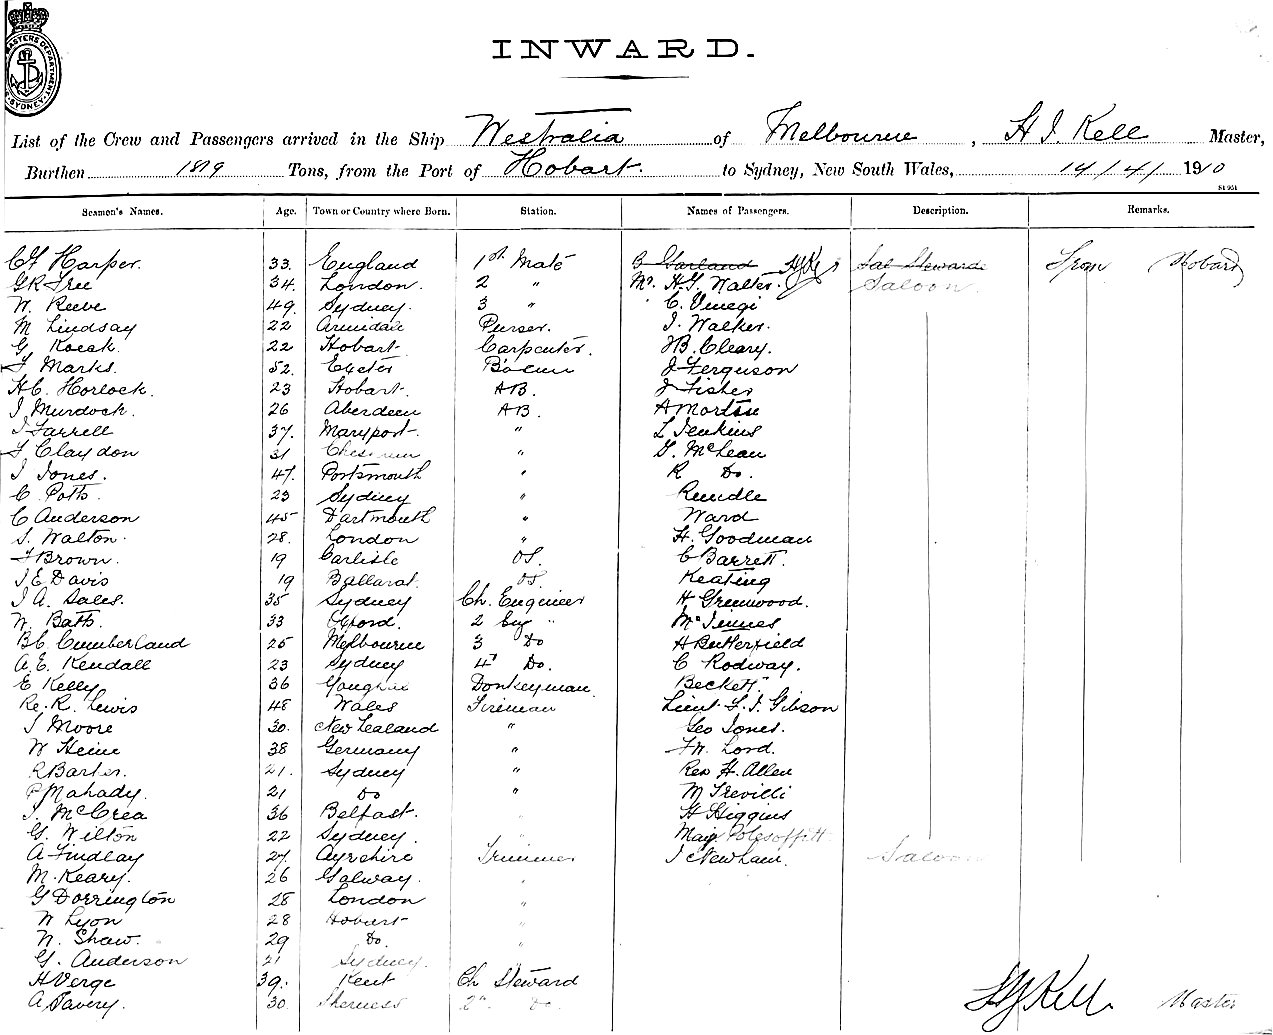 MASTERS DEPARTMENT SYDNEY
INWARD.
List of the Crew and Passengers arrived in the Ship Westralia of Melbourne, H J Kell Master,
Burthen 1819 Tons, from the Port of Hobart. to Sydney, New South Wales, 14/4/1910
Seamen's Names. Age. Town or Country where Born. Station. Names of Passengers. Description. Remarks.
Harper. 33. England 1st Mate G Garland Sal Steward From Hobart
GR Free 34. London. 2 " Mr H.G. Walter. Saloon.
W. Reeve 49. Sydney. 3 " C.
M Lindsay 22 Armidale Purser. J. Walker.
G 22 Hobart. Carpenter. HB. Cleary.
F Marks. 52. Exeter J Ferguson
H.C. Horlock. 23 Hobart. AB. J Fisher
J Murdock. 26 Aberdeen AB. A Martin
J Farrell 37. Maryport. " L Jenkins
F Claydon 31 " G. McLean
J Jones. 47. Portsmouth " R Do.
C. Potts. 23 Sydney " Rundle
C Anderson 45 Dartmouth " Ward
S. Walton. 28. London " H. Goodman
F Brown. 19 Carlisle OS. C Barrett.
J E Davis 19 Ballarat. OS. Keating
J A. Sales. 35 Sydney Ch. Engineer H Greenwood.
W. Batts. 33 Oxford. 2 Eng " McInnes
B.C. Cumberland 25 Melbourne 3 Do H Butterfield
A.E. Kendall 23 Sydney 4th Do. C Rodway.
E Kelly 36 Donkeyman. Beckett.
R. Lewis 48 Wales Fireman Lieut. L.J. Gibson
J Moore 30. New Zealand " Geo Jones.
W Heine 38 Germany " Lord.
R Barter. 21. Sydney " Rev H. Allen
P Mahady. 21 Do " M Trevilli
J. McCrea 36 Belfast. H Higgins
G. Wilton 22 Sydney.
A Findlay 27 Ayrshire Trimmer J Newham. Saloon
M. Keary. 26 Galway. "
G Dorrington 28 London "
W Lyon 28 Hobart "
W. Shaw. 29 Do. "
G. Anderson 21 Sydney.
H Verge 39. Kent Ch Steward
A Pavery. 30. Sheerness 2nd Do
H J Kell. Master